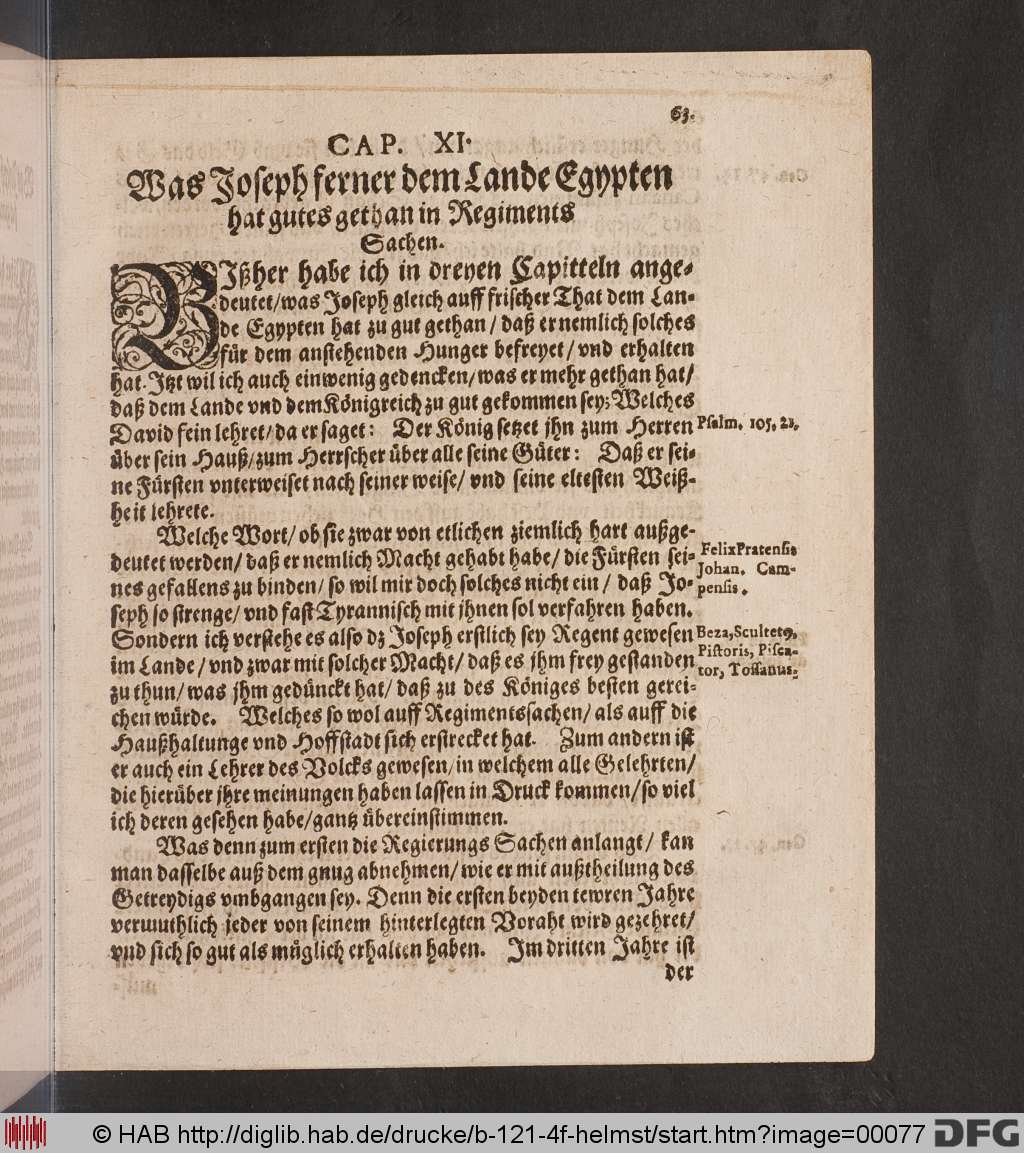 63.
CAP. XI.
Was Joseph ferner dem Lande Egypten
hat gutes gethan in Regiments
Sachen.
BIßher habe ich in dreyen Capitteln ange-
deutet/was Joseph gleich auff frischer That dem Lan-
de Egypten hat zu gut gethan / daß er nemlich solches
für dem anstehenden Hunger befreyet/ vnd erhalten
hat. Jtzt wil ich auch ein wenig gedencken/was er mehr gethan hat/
daß dem Lande vnd dem Königreich zu gut gekommen sey; Welches
David fein lehret/da er saget: Der König setzet jhn zum Herren
Psalm. 105, 21.
über sein Hauß/zum Herrscher über alle seine Güter: Daß er sei-
ne Fürsten vnterweiset nach seiner weise/ vnd seine eltesten Weiß-
heit lehrete.
Welche Wort/ ob sie zwar von etlichen ziemlich hart außge-
deutet werden/ daß er nemlich Macht gehabt habe/ die Fürsten sei-
Felix Pratensis
nes gefallens zu binden/ so wil mir doch solches nicht ein / daß Jo-
Johan. Cam-
pensis.
seph so strenge/ vnd fast Tyrannisch mit jhnen sol verfahren haben.
Sondern ich verstehe es also dz Joseph erstlich sey Regent gewesen
Beza, Scultetꝰ,
im Lande/ vnd zwar mit solcher Macht/ daß es jhm frey gestanden
Pistoris, Pisca-
tor, Tossanus.
zu thun/ was jhm gedünckt hat/ daß zu des Königes besten gerei-
chen würde. Welches so wol auff Regimentssachen/ als auff die
Haußhaltunge vnd Hoffstadt sich erstrecket hat. Zum andern ist
er auch ein Lehrer des Volcks gewesen/in welchem alle Gelehrten/
die hierüber jhre meinungen haben lassen in Druck kommen/so viel
ich deren gesehen habe/gantz übereinstimmen.
Was denn zum ersten die Regierungs Sachen anlangt/ kan
man dasselbe auß dem gnug abnehmen/ wie er mit außtheilung des
Getreydigs vmbgangen sey. Denn die ersten beyden tewren Jahre
vermuthlich jeder von seinem hinterlegten Voraht wird gezehret/
vnd sich so gut als müglich erhalten haben. Jm dritten Jahre ist
der
© HAB http://diglib.hab.de/drucke/b-121-4f-helmst/start.htm?image=00077
DFG